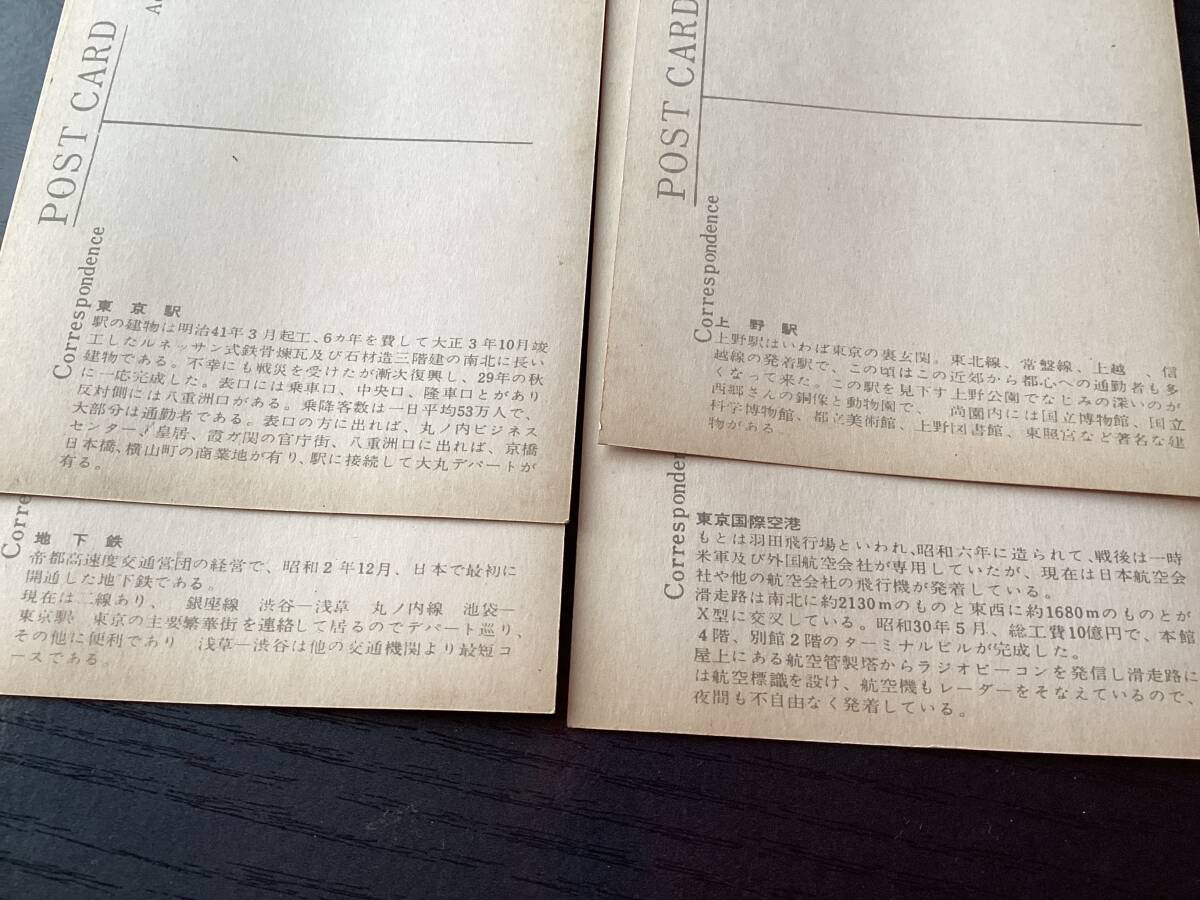 POST CARD
Correspondence
東京駅
駅の建物は明治41年3月起工、6カ年を費して大正3年10月竣
工したルネッサン式鉄骨煉瓦及び石材造三階建の南北に長い
建物である。不幸にも戦災を受けたが漸次復興し、29年の秋
に一応完成した。表口には乗車口、中央口、降車口とがあり
反対側には八重洲口がある。乗降客数は一日平均53万人で、
大部分は通勤者である。表口の方に出れば、丸ノ内ビジネス
センター、皇居、霞ガ関の官庁街、八重洲口に出れば、京橋
日本橋、横山町の商業地が有り、駅に接続して大丸デパートが
有る。
POST CARD
Correspondence
上野駅
上野駅はいわば東京の裏玄関。東北線、常盤線、上越、信
越線の発着駅で、この頃はこの近郊から都心への通勤者も多
くなって来た。この駅を見下す上野公園でなじみの深いのが
西郷さんの銅像と動物園で、尚園内には国立博物館、国立
科学博物館、都立美術館、上野図書館、東照宮など著名な建
物がある。
地下鉄
帝都高速度交通営団の経営で、昭和2年12月、日本で最初に
開通した地下鉄である。
現在は二線あり、 銀座線 渋谷—浅草 丸ノ内線 池袋—
東京駅 東京の主要繁華街を連絡して居るのでデパート巡り、
その他に便利であり 浅草—渋谷は他の交通機関より最短コ
ースである。
Correspondence
東京国際空港
もとは羽田飛行場といわれ、昭和六年に造られて、戦後は一時
米軍及び外国航空会社が専用していたが、現在は日本航空会
社や他の航空会社の飛行機が発着している。
滑走路は南北に約2130mのものと東西に約1680mのものとが
X型に交叉している。昭和30年5月、総工費10億円で、本館
4階、別館2階のターミナルビルが完成した。
屋上にある航空管製塔からラジオビーコンを発信し滑走路に
は航空標識を設け、航空機もレーダーをそなえているので、
夜間も不自由なく発着している。